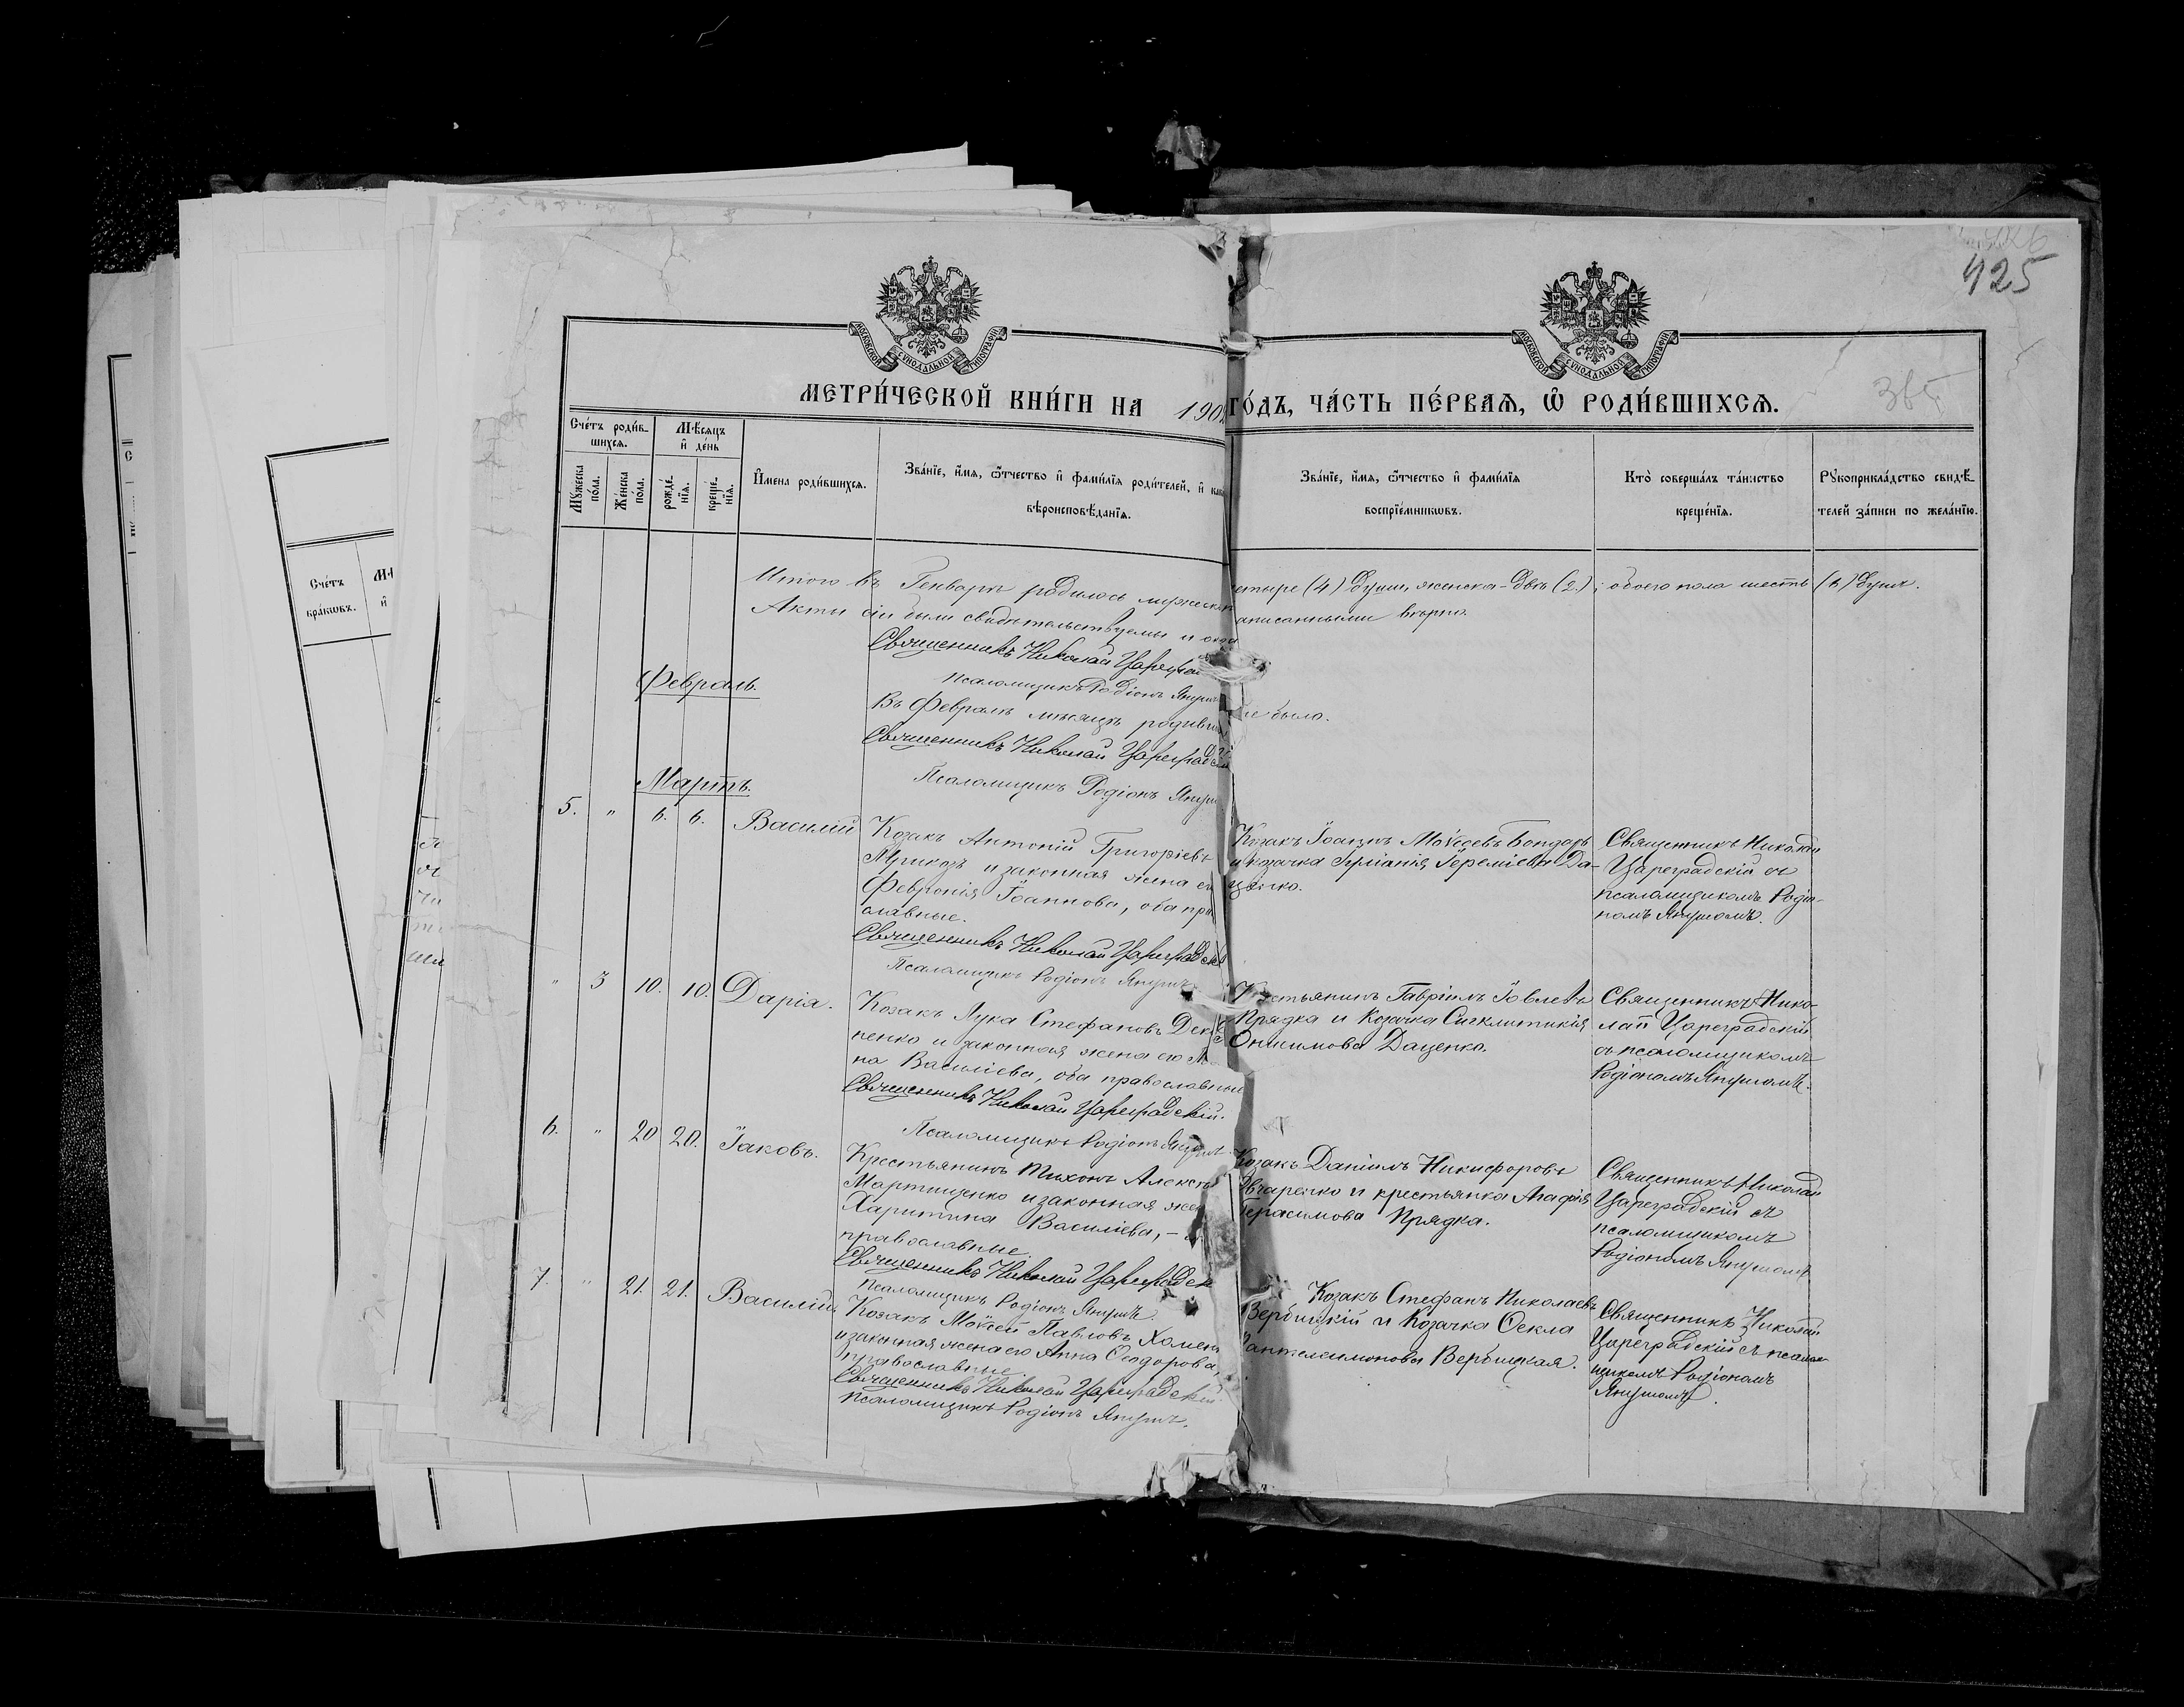 425
МОСКОВСКОЙ СѴНОДАЛЬНОЙ ТИПОГРАФІИ
МОСКОВСКОЙ СѴНОДАЛЬНОЙ ТИПОГРАФІИ
МЕТРИ́ЧЕСКОЙ КНИ́ГИ НА 190 ГО́ДЪ, ЧА́СТЬ ПЕ́РВАѦ, Ѡ РОДИ́ВШИХСѦ.
Сче́тъ роди́в-
шихсѧ.
Мѣ́сѧцъ
и҆ де́нь
Мꙋ́жеска
по́ла.
Же́нска
по́ла.
рожде́-
нїѧ.
креще́-
нїѧ.
И҆мена̀ роди́вшихсѧ.
Зва́нїе, и҆́мѧ, ѻ҆́тчество и҆ фами́лїѧ роди́телей, и҆
вѣроисповѣ́данїѧ.
Зва́нїе, и҆́мѧ, ѻ҆́тчество и҆ фами́лїѧ
воспрїе́мникѡвъ.
Кто̀ соверша́лъ та́инство
креще́нїѧ.
Рꙋкоприкла́дство свидѣ́-
телей за́писи по жела́нїю.
Итого въ Генварѣ родилось мужеска
етыре (4) души, женска - двѣ (2); обоего пола шесть (6) душъ.
Акты сіи были свидѣтельствуемы и
аписанными вѣрно.
Священникъ Николай
Псаломщикъ Родіонъ
Февраль.
Въ Февралѣ мѣсяцѣ родивш
не было.
Священникъ Николай Цареградскій
Псаломщикъ Родіонъ
Мартъ.
5. " 6. 6. Василій
Козакъ Антоній Григоріевъ
и законная жена ег
Февронія Іоаннова, оба пра
славные.
Священникъ Николай Цареградск
Псаломщикъ Родіонъ
Козакъ Іоаннъ Моѵсеевъ Бондарь
и козачка Іуліанія Іереміева Да-
ценко.
Священникъ Николай
Цареградскій съ
псаломщикомъ Родіо-
номъ
" 3 10. 10. Дарія.
Козакъ Лука Стефановъ
пенко и законная жена его
на Василіева, оба православные
Священникъ Николай Цареградскій.
Псаломщикъ Родіонъ
Крестьянинъ Гавріилъ Іовлевъ
Прядка и Козачка Сигклитикія
Онисимова Даценко.
Священникъ Нико-
лай Цареградскій
съ псаломщикомъ
Родіономъ
6. " 20 20. Іаковъ.
Крестьянинъ Тихонъ Алексѣ
Мартиценко и законная же
Харитина Василіева, -
православные.
Священникъ Николай Цареградск
Псаломщикъ Родіонъ
Козакъ Даніилъ Никифоровъ
Овчаренко и крестьянка Агафія
Герасимова Прядка.
Священникъ Николай
Цареградскій съ
псаломщикомъ
Родіономъ
7. " 21. 21. Василій
Козакъ Моѵсей Павловъ Хомен
и законная жена его Анна Ѳеодорова,
православные
Священникъ Николай Цареградскій.
Псаломщикъ Родіонъ
Козакъ Стефанъ Николаевъ
Вербицкій и Козачка Ѳекла
Пантелеимонова Вербицкая.
Священникъ Николай
Цареградскій съ псалом-
щикомъ Родіономъ
Сче́тъ
бра́кѡвъ.